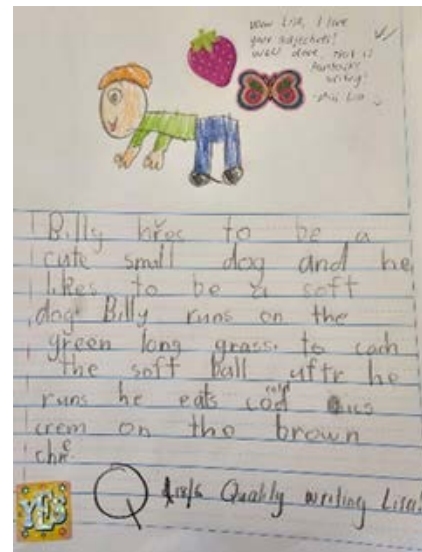 Wow Lisa, I love
your adjectives!
Well done, that is
fantastic
writing!
Billy to be a
cute small dog and he
likes to be a soft
dog Billy runs on the
green long grass. to cach
the soft ball uftr he
cold
runs he eats cod
crem on the brown
YES
Quality writing Lisa!